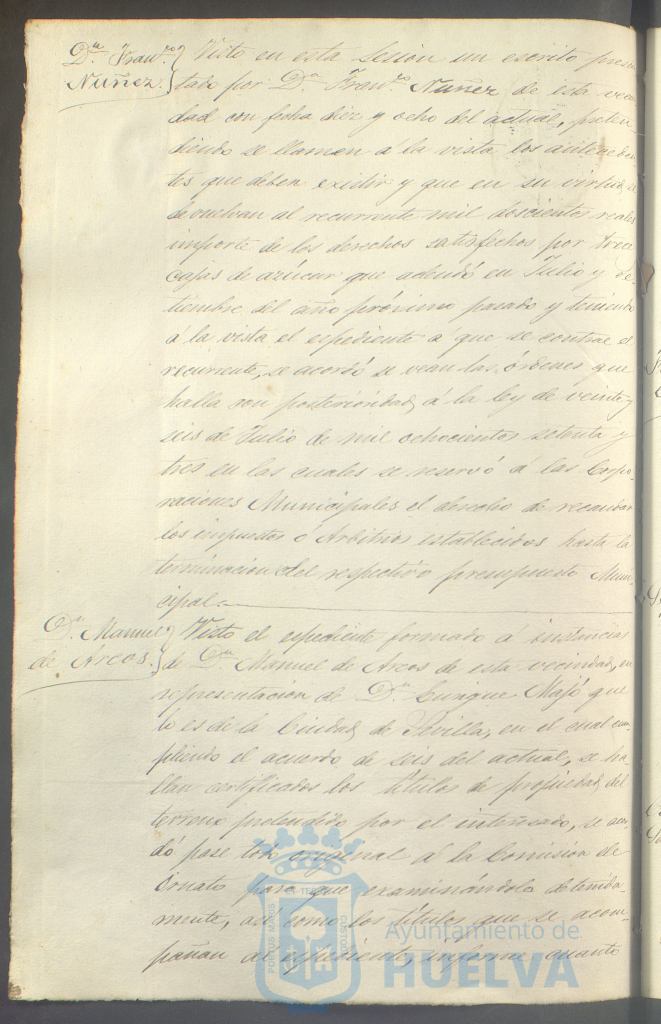 Dn. Franco. Nuñez.
Visto en esta Sesion un escrito presen
tado por Dn. Franco. Nuñez de esta vecin
dad con fecha diez y ocho del actual, preten
diendo se llamen á la vista los anteceden
tes que deben existir y que en su virtud se
devuelvan al recurrente mil doscientos reales
importe de los derechos satisfechos por trece
cajas de azúcar que adeudó en Julio y Se
tiembre del año próximo pasado y teniendo
á la vista el espediente á que se contrae el
recurrente, se acordó se vean las órdenes que
halla con posterioridad á la ley de veinte y
seis de Julio de mil ochocientos setenta y
tres en las cuales se reservó á las Corpo
raciones Municipales el derecho de recaudar
los impuestos ó Arbitrios establecidos hasta la
terminacion del respectivo presupuesto Muni
cipal.
Dn. Manuel de Arcos.
Visto el espediente formado á instancias
de Dn. Manuel de Arcos de esta vecindad, en
representacion de Dn. Enrique Majó que
lo es de la Ciudad de Sevilla, en el cual cum
pliendo el acuerdo de seis del actual, se ha
llan certificados los titulos de propiedad del
terreno pretendido por el interesado, se acor
dó pase todo original á la Comision de
Ornato para que examinándolo detenida
mente, asi como los titulos que se acom
pañan al espediente, informe cuanto
PORTUS MARIS ET TERRAE CUSTODIA
Ayuntamiento de
HUELVA